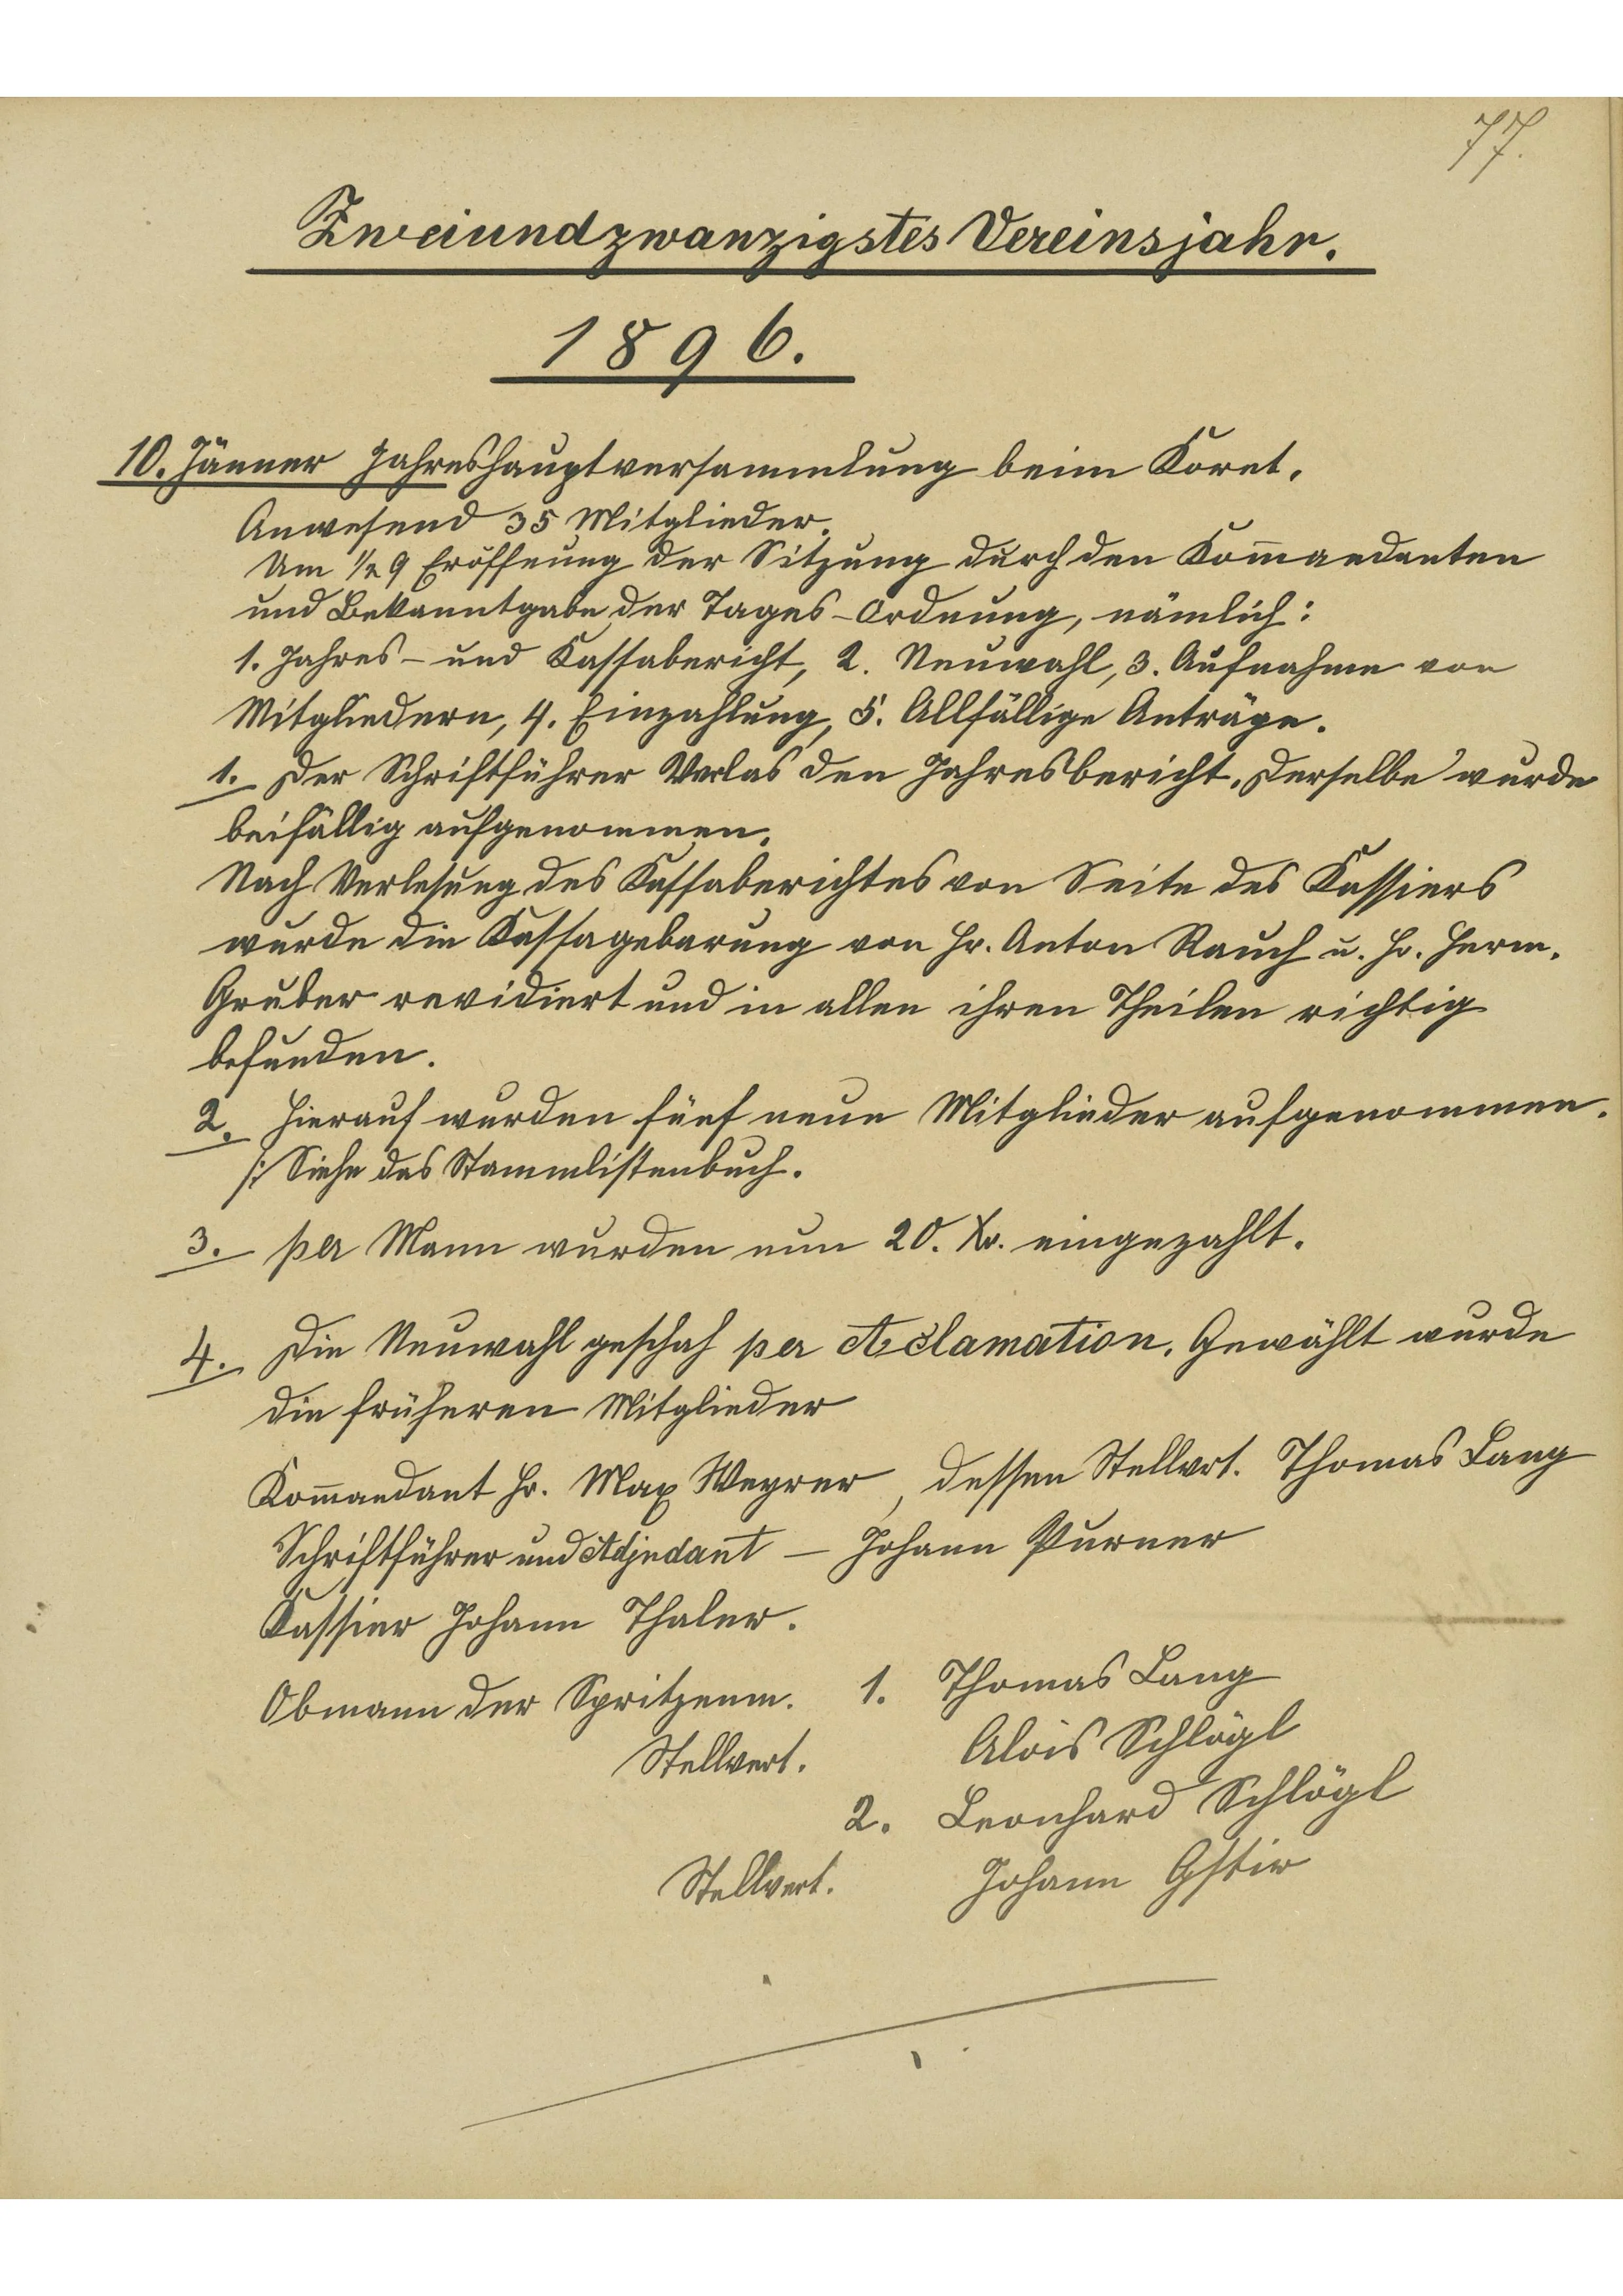 77.
Zweiundzwanzigstes Vereinsjahr.
1896.
10. Jänner Jahreshauptversammlung beim Koret.
Anwesend 35 Mitglieder.
Um 1/2 9 Eröffnung der Sitzung durch den Kom̄andanten
und Bekanntgabe der Tages-Ordnung, nämlich:
1. Jahres- und Kassabericht, 2. Neuwahl, 3. Aufnahme von
Mitgliedern, 4. Einzahlung, 5. Allfällige Anträge.
1. Der Schriftführer Verlas den Jahresbericht. Derselbe wurde
beifällig aufgenommen.
Nach Verlesung des Kassaberichtes von Seite des Kassiers
wurde die Kassagebarung von Hr. Anton Rauch u. Hr. Herm.
Gruber revidiert und in allen ihren Theilen richtig
befunden.
2. Hierauf wurden fünf neue Mitglieder aufgenommen.
/: Siehe das Stammlistenbuch.
3. per Mann wurden nun 20. Kr. eingezahlt.
4. Die Neuwahl geschah per Acclamation. Gewählt wurde
die früheren Mitglieder
Kom̄andant Hr. Max Weyrer, dessen Stellvrt. Thomas Lang
Schriftführer und Adjudant – Johann Purner
Kassier Johann Thaler.
Obmann der Spritzenm. 1. Thomas Lang
Stellvert. Alois Schlögl
2. Leonhard Schlögl
Stellvert. Johann Gstir